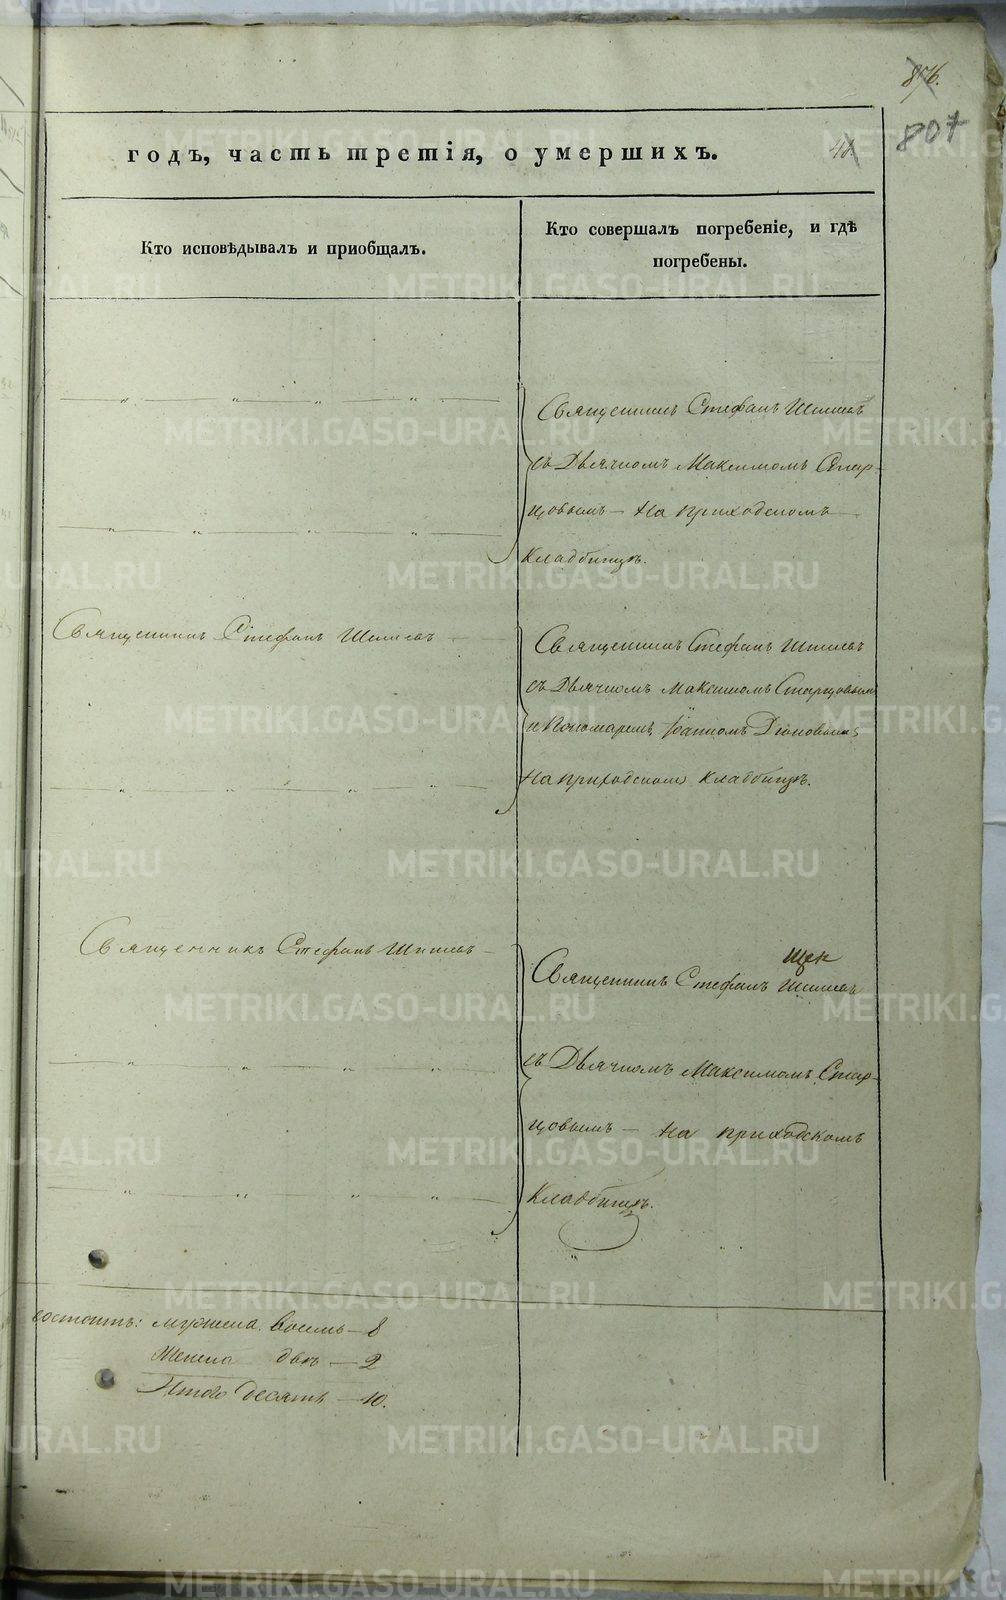 876.
807
годъ, часть третія, о умершихъ.
48
Кто исповѣдывалъ и приобщалъ.
Кто совершалъ погребеніе, и гдѣ
погребены.
Священникъ Стефанъ
съ Дьячкомъ Максимомъ Стар-
цовымъ — на приходскомъ
кладбищѣ.
Священникъ Стефанъ
Священникъ Стефанъ
съ Дьячкомъ Максимомъ Старцовымъ
и Пономаремъ Іоанномъ
на приходскомъ кладбищѣ.
Священникъ Стефанъ
Священникъ Стефанъ
съ Дьячкомъ Максимомъ Стар-
цовымъ — на приходскомъ
кладбищѣ.
состоитъ: мужеска восемь — 8
Женска двѣ — 2
Итого десять — 10.
METRIKI.GASO-URAL.RU